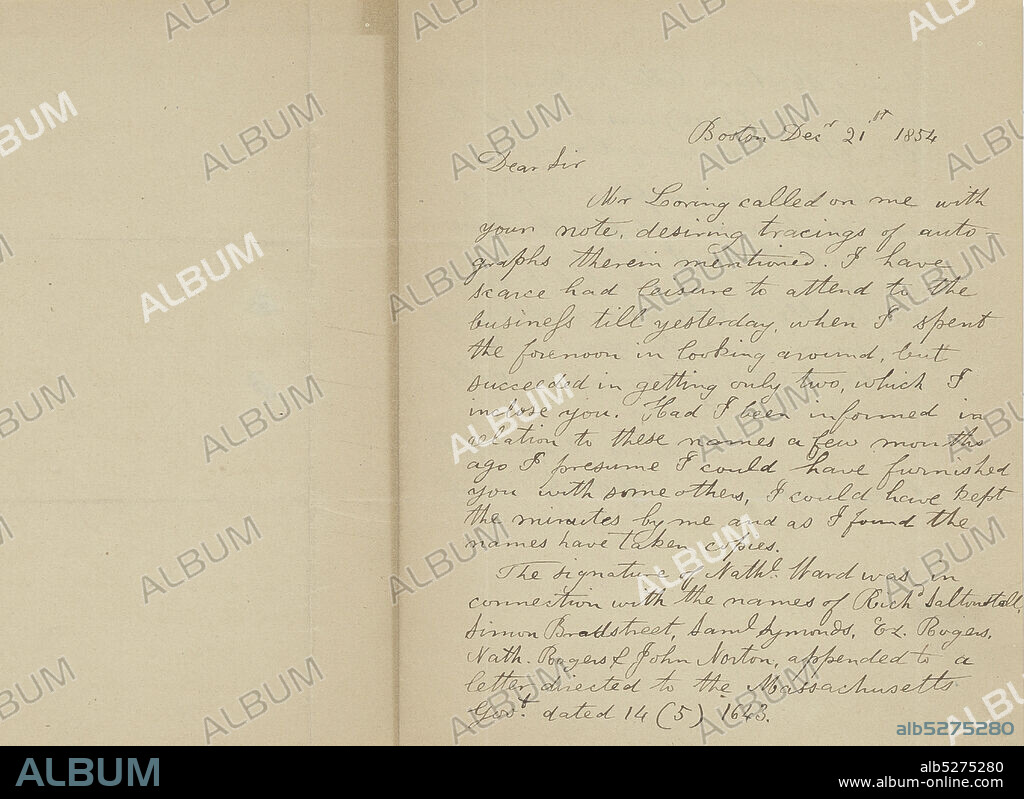 Boston Decr 21st 1854
Dear Sir
Mr Loring called on me with
your note, desiring tracings of auto-
graphs therein mentioned. I have
scarce had leisure to attend to the
business till yesterday, when I spent
the forenoon in looking around, but
succeeded in getting only two, which I
inclose you. Had I been informed in
relation to these names a few months
ago I presume I could have furnished
you with some others, I could have kept
the minutes by me and as I found the
names have taken copies.
The signature of Nathl. Ward was in
connection with the names of Richd Saltonstall,
Simon Bradstreet, Saml Symonds, Ez. Rogers,
Nath. Rogers & John Norton, appended to a
letter directed to the Massachusetts
Govt. dated 14 (5) 1643.
ALBUM
alb5275280
ALBUM
alb5275280
www.album-online.com